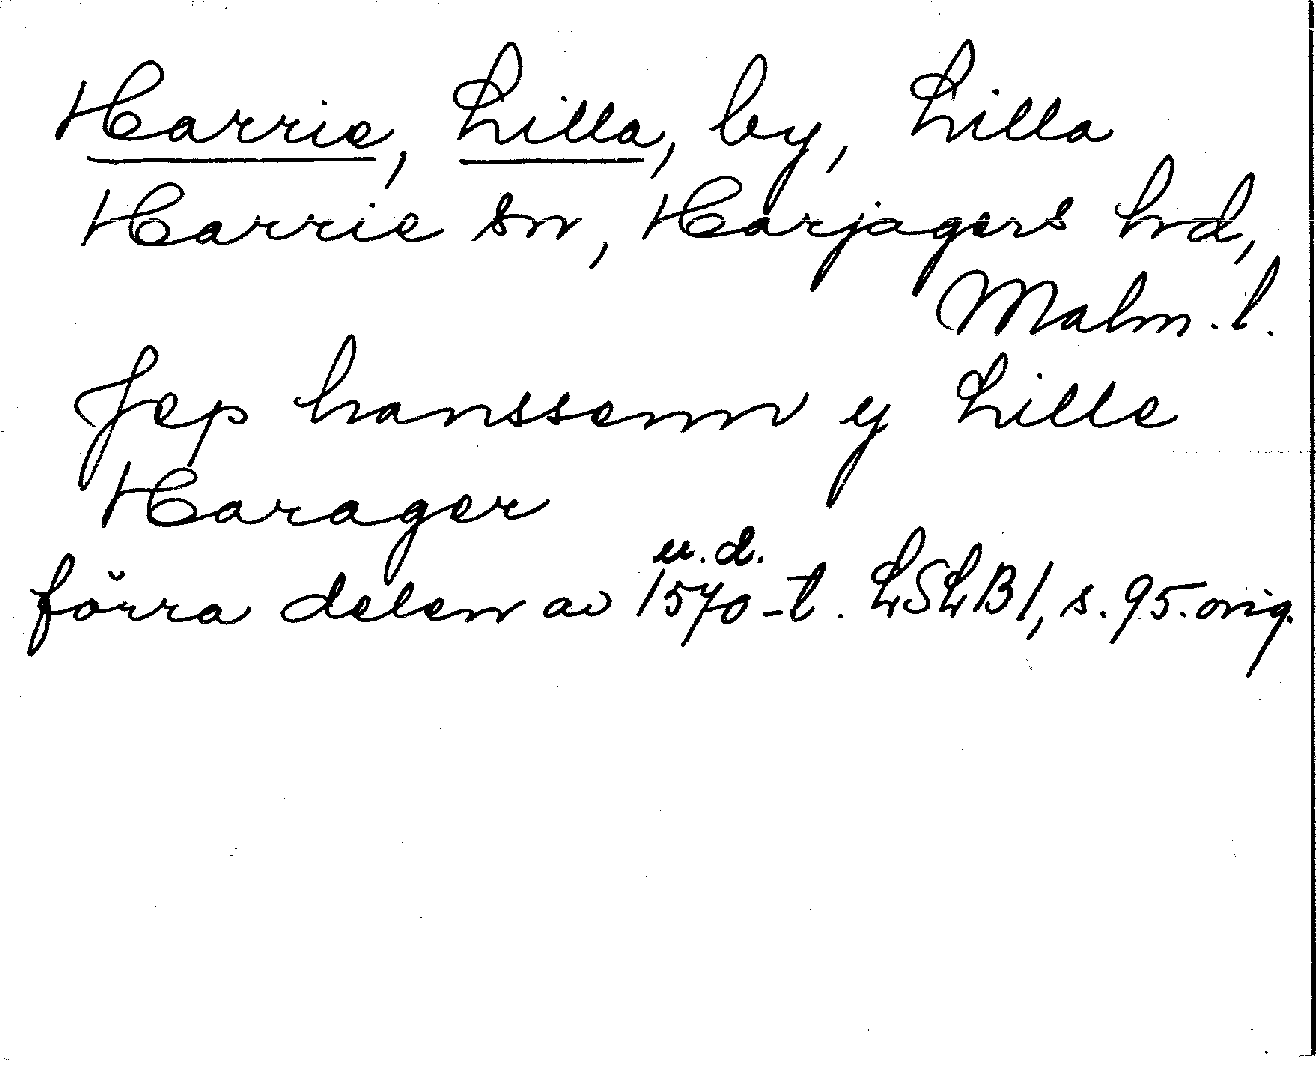 Harrie, Lilla, by, Lilla
Harrie sn, Harjagers hrd,
Malm. l.
Jep hanssenn y Lille
Harager
u. d.
förra delen av 1570-t. LSLB1, s. 95. orig.